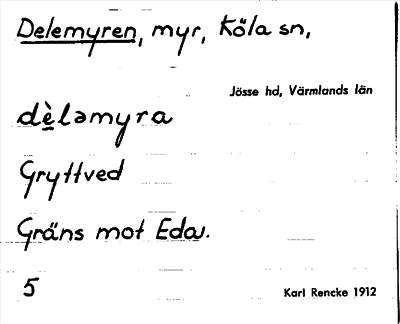 Delemyren, myr, Köla sn,
Jösse hd, Värmlands län
dè̱ləmyra
Gryttved
Gräns mot Eda.
5
Karl Rencke 1912